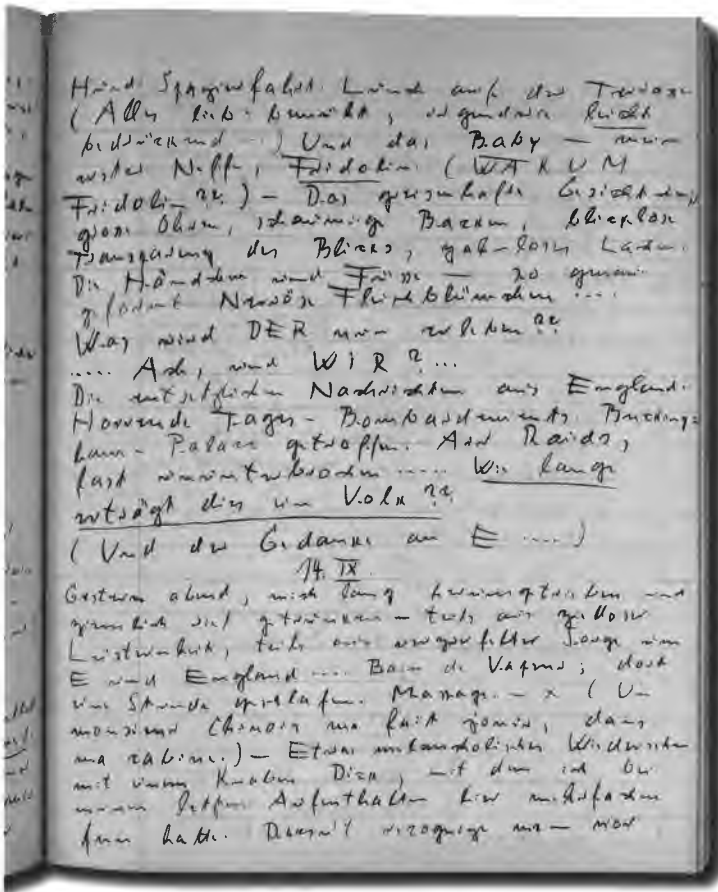 Hund. Spazierfahrt. Lunch auf der Terrasse
(Alles lieb-bemüht, irgendwie leicht
bedrückend ...) Und das Baby — mein
erster Neffe, Fridolin. (WARUM
Fridolin??) — Das greisenhafte Gesicht mit
grossen Ohren, Backen, blicklose
des Blicks, zahnloses Lachen.
Die Händchen und Füsse — so
geformt. Nervöse Fleischblümchen ....
Was wird DER nun erleben??
..... Ach, und WIR? ...
Die entsetzlichen Nachrichten aus England.
Horrende Tages-Bombardements. Bucking-
ham-Palace getroffen. Air Raids,
fast ununterbrochen ..... Wie lange
erträgt dies ein Volk??
(Und der Gedanke an E .....)
14. IX.
Gestern abend, mich lang herumgetrieben und
ziemlich viel getrunken — teils aus zielloser
Lüsternheit, teils aus Sorge um
E und England .... Bain de Vapeur; dort
eine Stunde geschlafen. Massage. — x (Un
monsieur Chinois me fait jouir, dans
ma cabine.) — Etwas melancholisches Wiedersehen
mit einem Knaben Dick, mit dem ich bei
meinem letzten Aufenthalten hier mehrfachen
fun hatte. Doesn't recognize me — nor